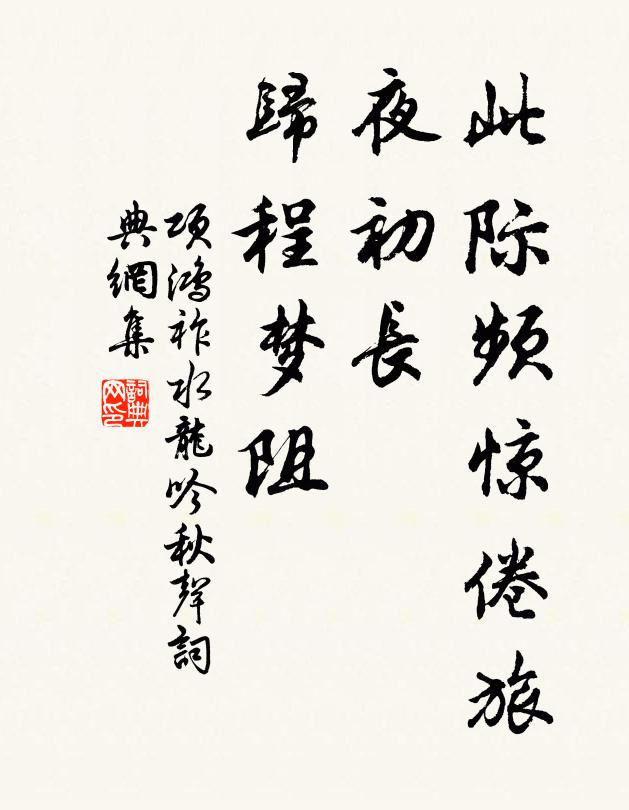 此际频惊倦旅
夜初長
歸程梦阻
项鸿祚水龍吟秋聲詞
典網集
詞典網印